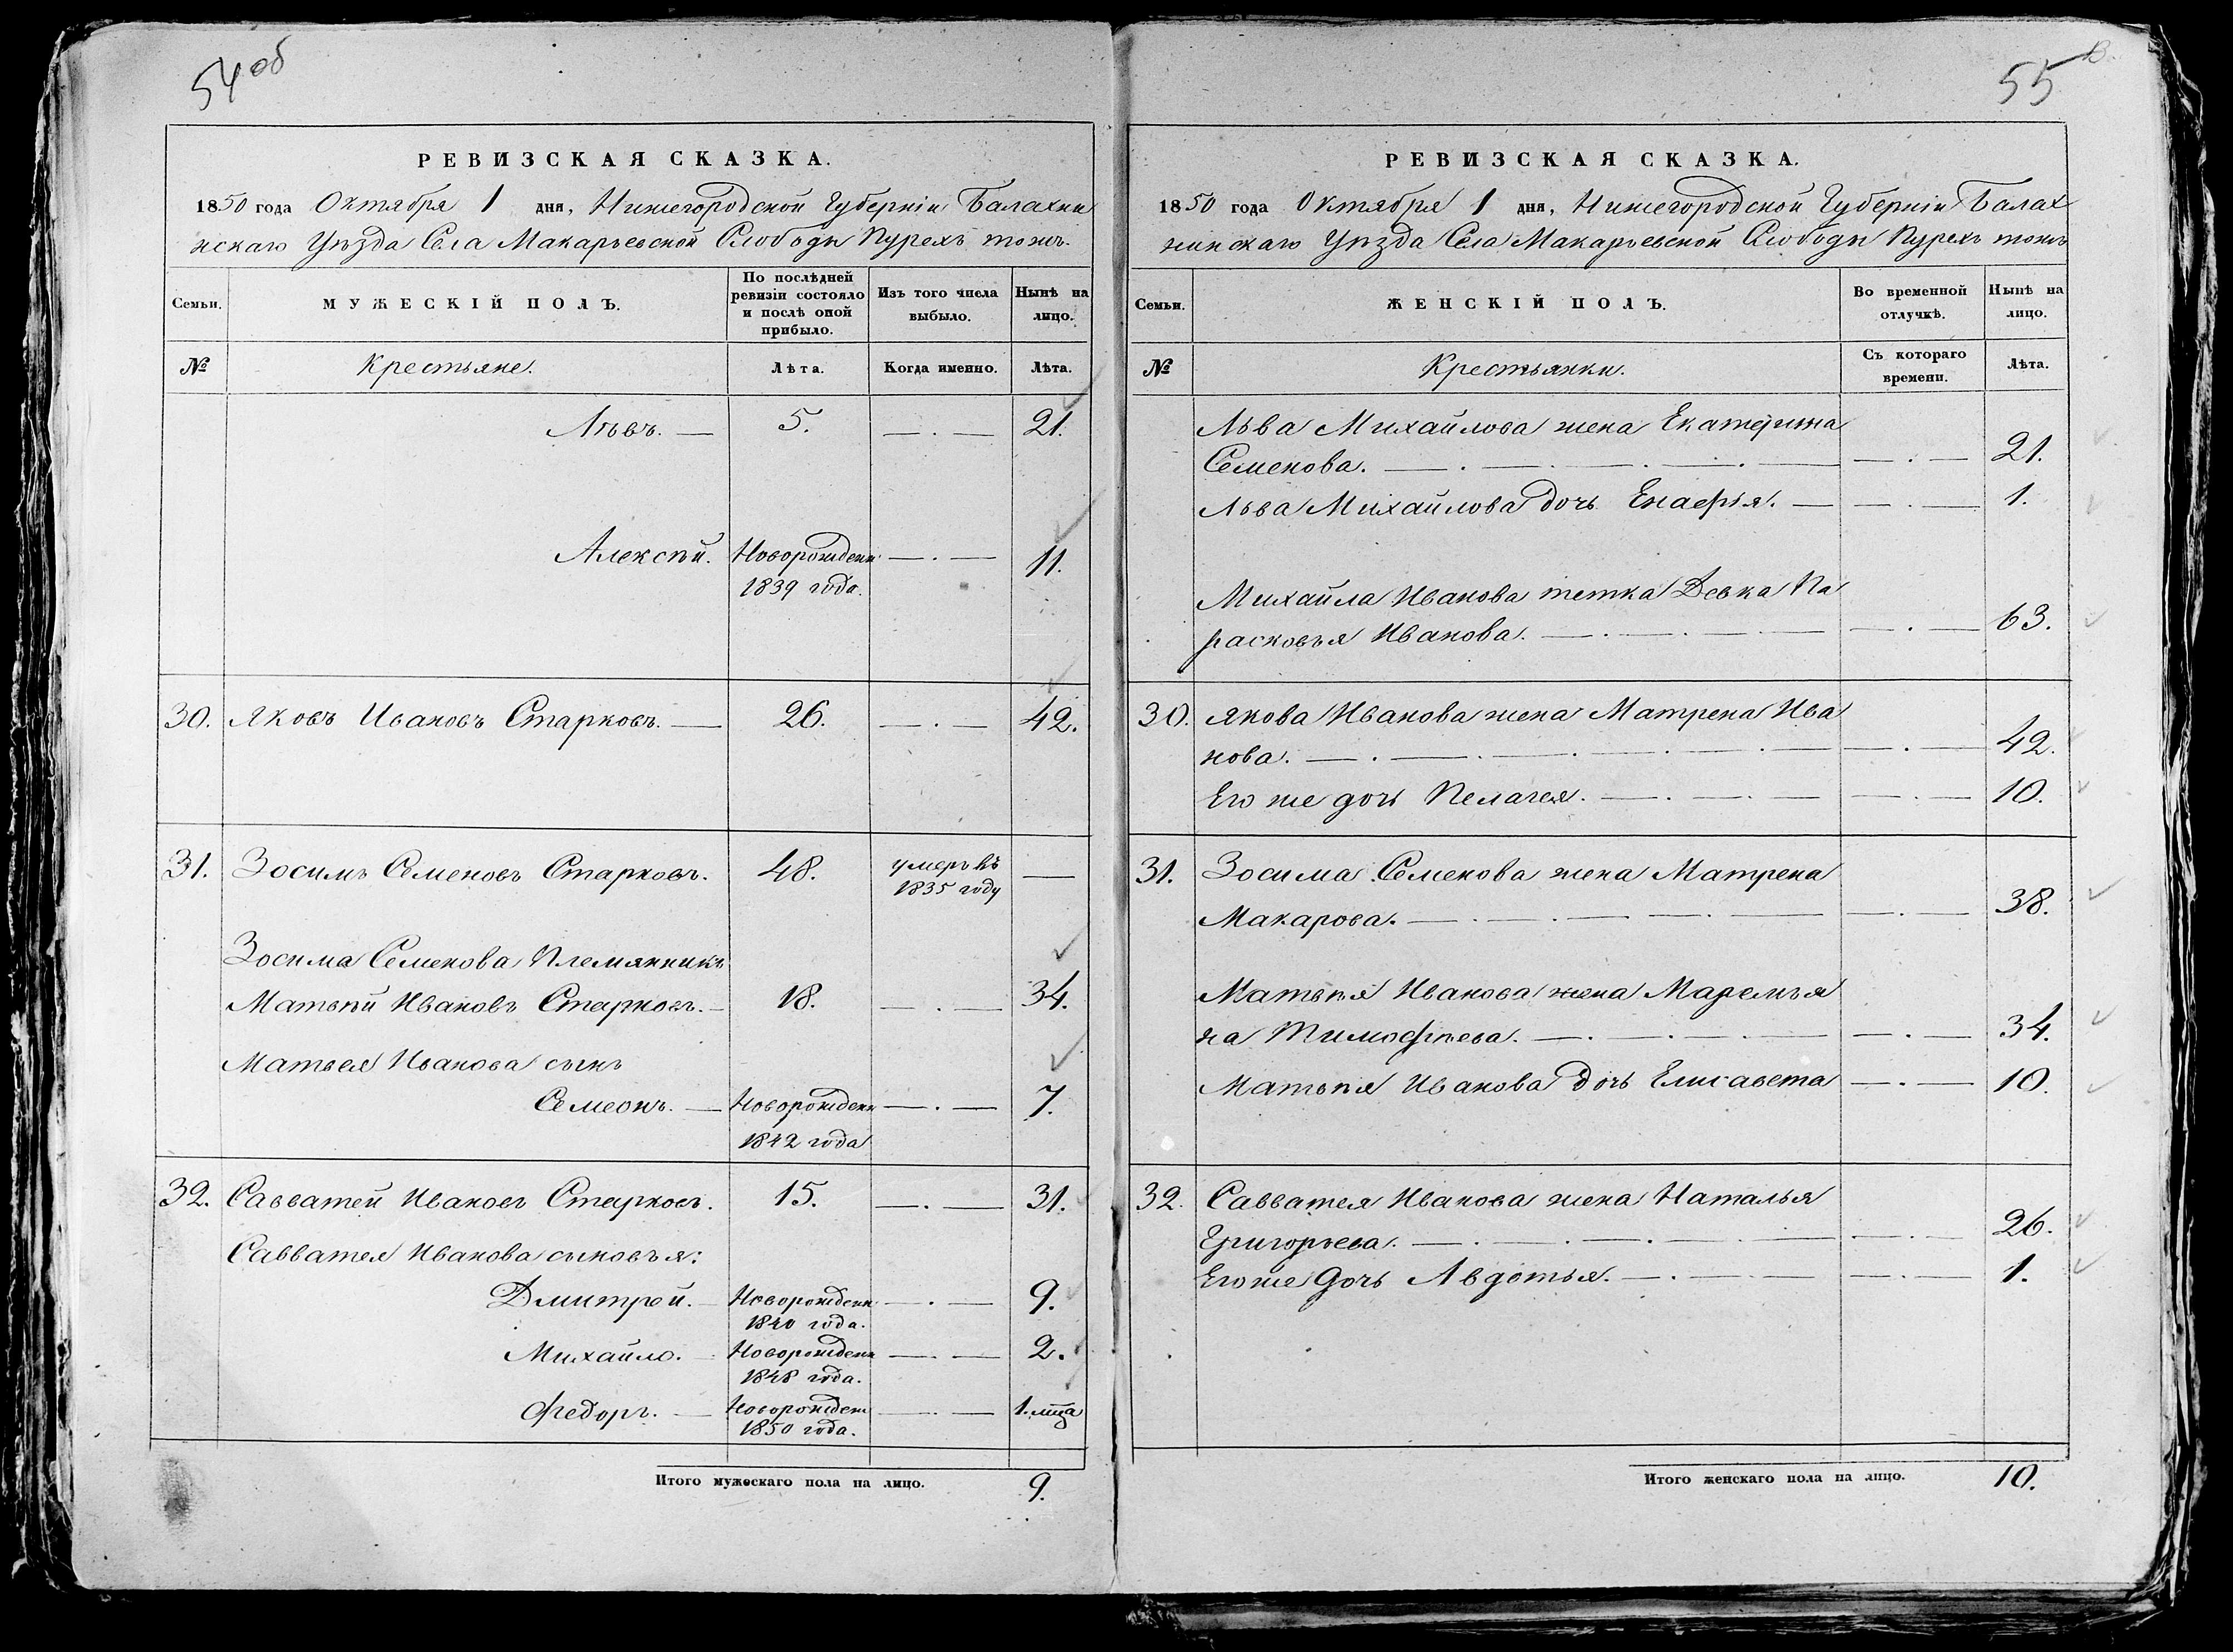 54 об
РЕВИЗСКАЯ СКАЗКА.
1850 года Октября 1 дня, Нижегородской Губерніи Балахни
нскаго Уѣзда Села Макарьевской Слободы Пурехъ тожъ.
Семьи.
МУЖЕСКІЙ ПОЛЪ.
По послѣдней
ревизіи состояло
и послѣ оной
прибыло.
Изъ того числа
выбыло.
Нынѣ на
лицо.
№
Крестьяне.
Лѣта.
Когда именно.
Лѣта.
Львъ. — 5. — . — 21.
Алексѣй. Новорожденн — . — 11.
1839 года.
30. Яковъ Ивановъ Старковъ. — 26. — . — 42.
31. Зосимъ Семеновъ Старковъ. 48. умеръ въ —
1835 году
Зосима Семенова Племянникъ
Матвѣй Ивановъ Старковъ. — 18. — . — 34.
Матвея Иванова сынъ
Семеонъ. — Новорожденн — . — 7.
1842 года
32. Савватей Ивановъ Старковъ. 15. — . — 31.
Савватея Иванова сыновья:
Дмитрей. — Новорожденн — . — 9.
1840 года.
Михайло. — Новорожден — . — 2.
1848 года.
Федоръ. — Новорожден — . — 1. мца
1850 года.
Итого мужескаго пола на лицо. 9.
55
РЕВИЗСКАЯ СКАЗКА.
1850 года Октября 1 дня, Нижегородской Губерніи Балах
нинскаго Уѣзда Села Макарьевской Слободы Пурехъ тожъ
Семьи.
ЖЕНСКІЙ ПОЛЪ.
Во временной
отлучкѣ.
Нынѣ на
лицо.
№
Крестьянки.
Съ котораго
времени.
Лѣта.
Льва Михайлова жена Екатерина
Семенова. — . — 21.
Льва Михайлова дочь Енафія. — — . — 1.
Михайла Иванова тетка Девка Па
расковья Иванова. — . — 63.
30. Якова Иванова жена Матрена Ива
нова. — . — 42.
Его же дочь Пелагея. — . — 10.
31. Зосима Семенова жена Матрена
Макарова. — . — 38.
Матвѣя Иванова жена Маремья
на Тимофѣева. — . — 34.
Матвѣя Иванова дочь Елисавета — . — 10.
32. Савватея Иванова жена Наталья
Григорьева. — . — 26.
Его же дочь Авдотья. — . — 1.
Итого женскаго пола на лицо. 10.